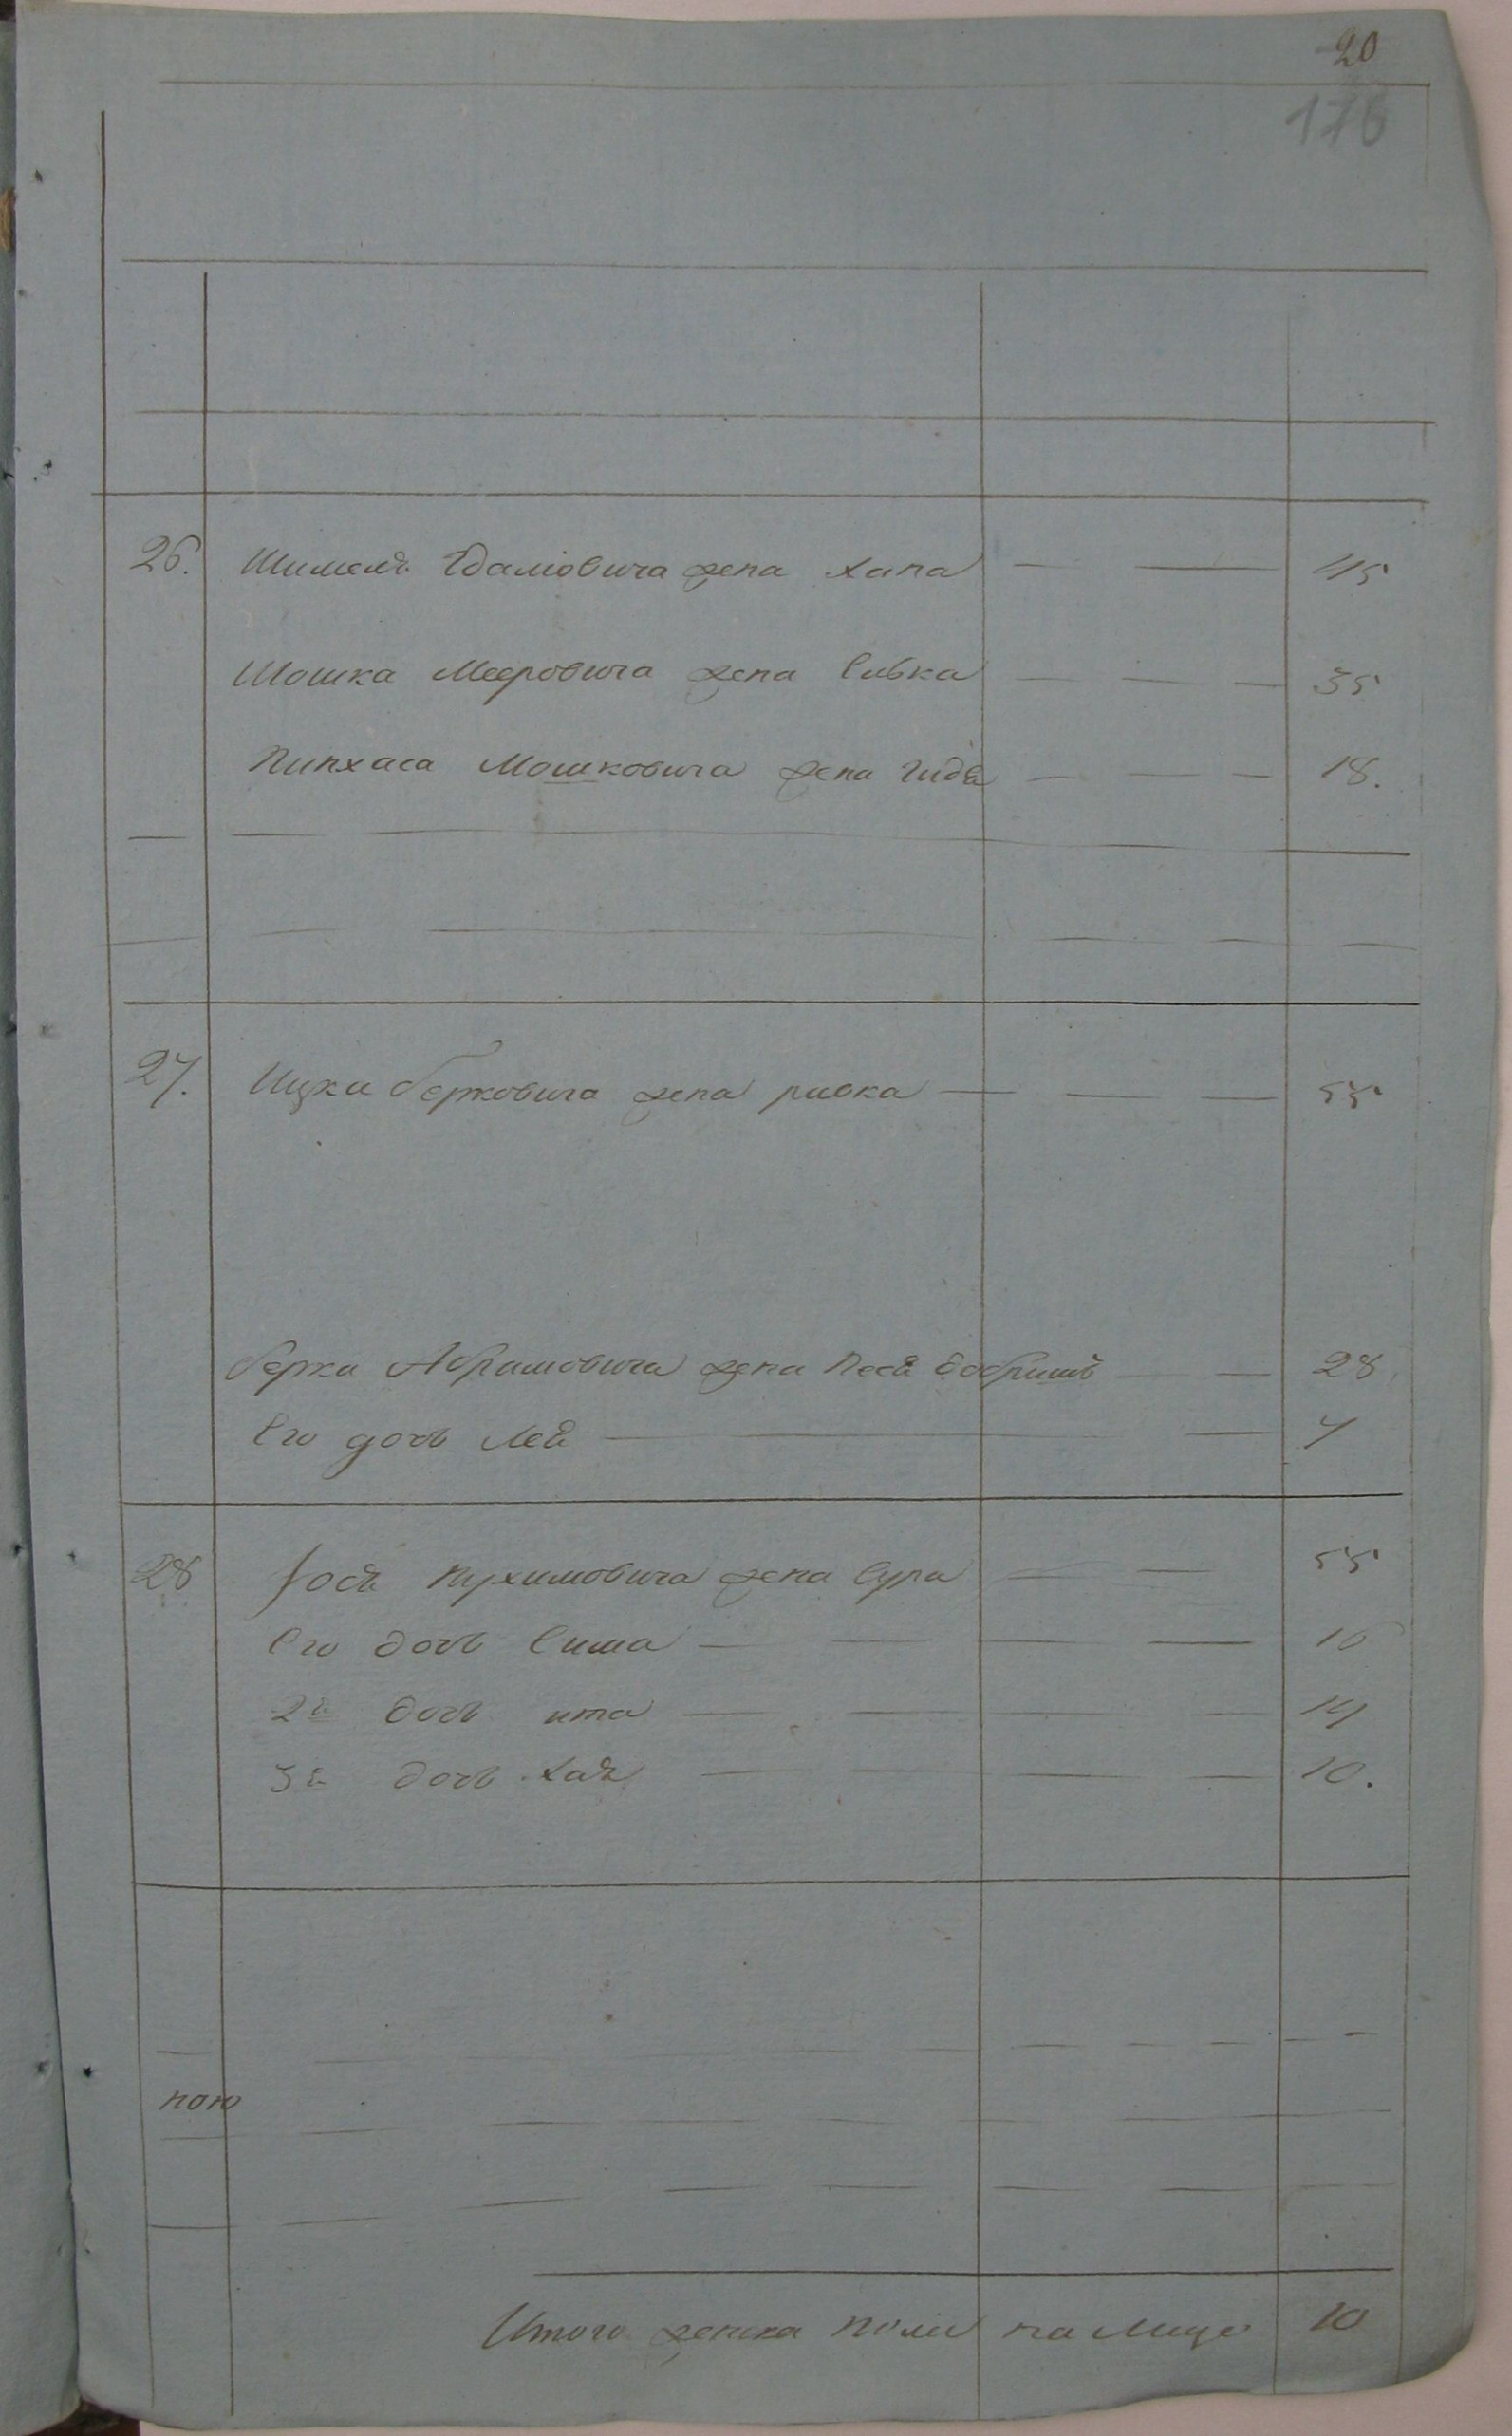 20
176
26. Шимеля Гдаліовича жена Хана 45
Мошка Мееровича жена Сивка 35
Пинхаса Мошковича жена Гидя 18.
27. Ицки Берковича жена ривка 55
берки Абрамовича жена Песя добришъ 28
Его дочь Лея 4
28 Іося Нухимовича жена Сура 55
Его дочь Сима 16
2я дочь ита 14
3я дочь Хая 10.
ною
Итого женска полу на лицо 10